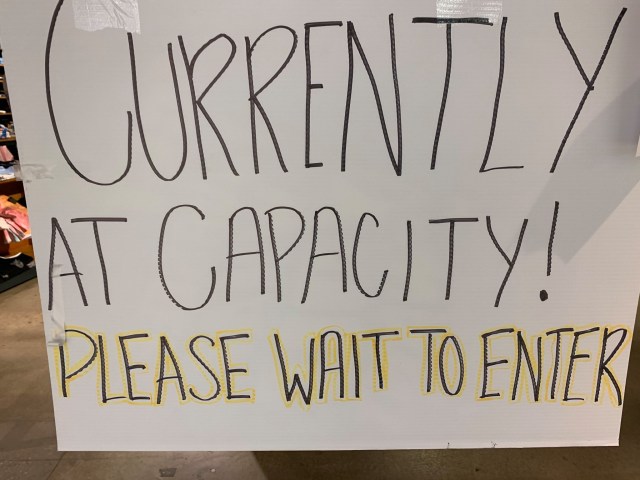 CURRENTLY
AT CAPACITY!
PLEASE WAIT TO ENTER